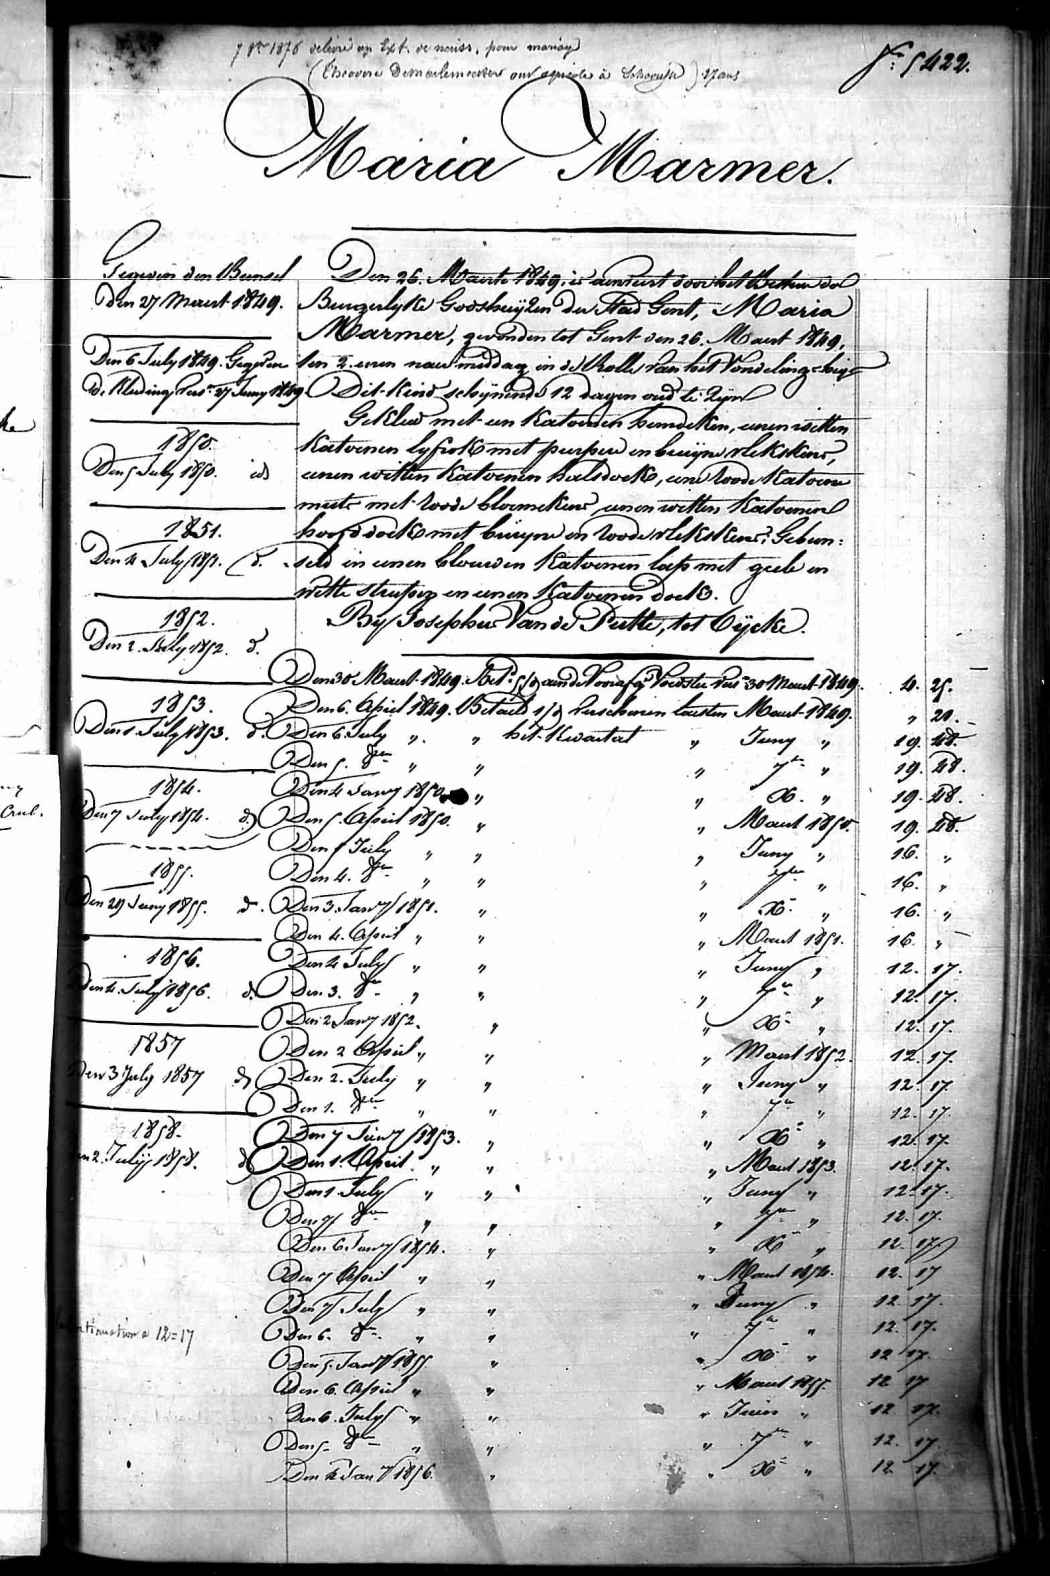 7 8bre 1876 délivré un Ext. de naiss. pour mariage
27 ans
No. 5422.
Maria Marmer.
Gegeven den Bunsel
den 27 Maart 1849.
Den 6 July 1849. Gegeven
de Kleeding Vers. 27 Juny 1849
1850.
Den 5 July 1850. id
1851.
Den 4 July 1851. d.
1852.
Den 2. July 1852. d.
1853.
Den 1 July 1853. d.
1854.
Den 7 July 1854. d.
1855.
Den 29 Juny 1855. d.
1856.
Den 4 July 1856. d.
1857
Den 3 July 1857 d
1858.
2. July 1858. d
12=17
Den 26. Maart 1849, is aenveird door het Bestier der
Burgerlyke Godshuyzen der Stad Gent, Maria
Marmer, gevonden tot Gent den 26. Maart 1849,
ten 2. uren naermiddag in de Rolle van het Vondelinghuys
Dit Kind schynende 12 dagen oud te zyn
Gekleed met een Katoenen hemdeken, eenen witten
Katoenen lyfrok met purper en bruyne vlekskens,
eenen witten Katoenen halsdoek, eene roode Katoene
muts met roode bloemekens, eenen witten Katoenen
hoofddoek met bruyne en roode vlekskens. Gebun:
seld in eenen blouwen Katoenen lap met geele en
witte streepen en eenen Katoenen doek.
By Josephus Van de Putte, tot Eycke.
Den 30 Maart 1849. 30 Maart 1849. 4. 25.
Den 6. April 1849. Betaeld verschenen laesten Maart 1849. " 20.
Den 6 July " " het Kwartael " Juny " 19. 48.
Den 5. 8bre " " " 7bre " 19. 48.
Den 4 Janry 1850. " " X. " 19. 48.
Den 5. April 1850. " " Maart 1850. 19. 48.
Den 5 July " " " Juny " 16. "
Den 4. 8bre " " " 7bre " 16. "
Den 3. Janry 1851. " " Xbre " 16. "
Den 4. April " " " Maart 1851. 16. "
Den 4 July " " " Juny " 12. 17.
Den 3. 8bre " " " 7bre " 12. 17.
Den 2 Janry 1852. " " Xbre " 12. 17.
Den 2 April " " " Maart 1852. 12. 17.
Den 2. July " " " Juny " 12. 17
Den 1. 8bre " " " 7bre " 12. 17.
Den 7 Janry 1853. " " Xbre " 12. 17.
Den 1. April " " " Maart 1853. 12. 17.
Den 1 July " " " Juny " 12. 17.
Den 7 8bre " " " 7bre " 12. 17.
Den 6 Janry 1854. " " Xbre " 12. 17.
Den 7 April " " " Maart 1854. 12. 17
Den 7 July " " " Juny " 12 17.
Den 6. 8bre " " " 7bre " 12. 17.
Den 5. Janry 1855 " " Xbre " 12 17.
Den 6. April " " " Maart 1855. 12 17
Den 6. July " " " Juin " 12 17.
Den 5 8bre " " " 7bre " 12. 17.
Den 4 Janry 1856. " " Xbre " 12 17.